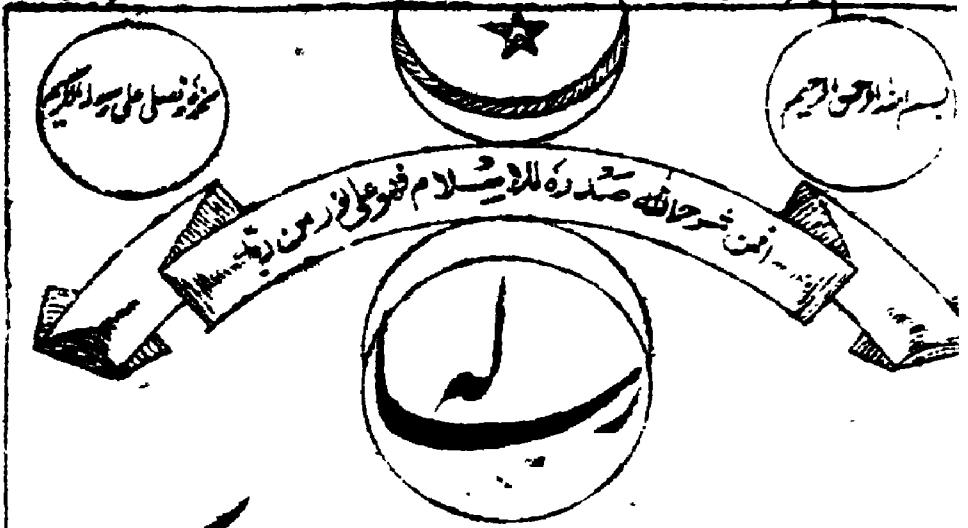 بسم اللہ الرحمن الرحیم
نحمدہ و نصلی علی رسولہ الکریم
افمن شرح اللہ صدرہ للاسلام فھو علی نور من ربہ